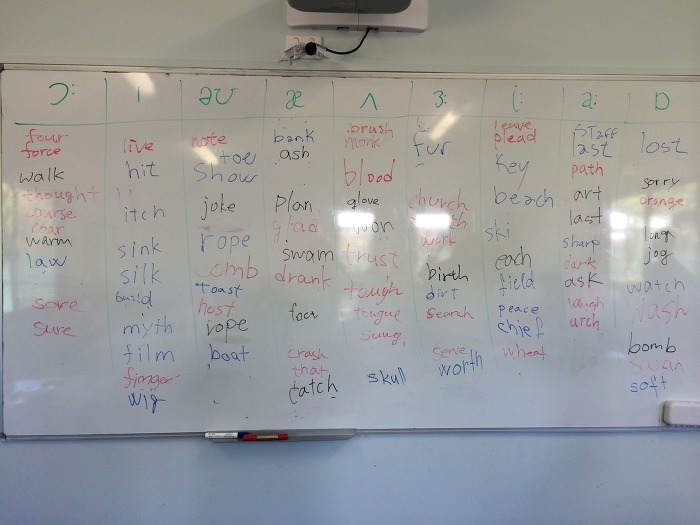 ɔ: ɪ əʊ æ ʌ ɜ: i: ɑ: ɒ
four
force
walk
thought
course
roar
warm
law
sore
sure
live
hit
itch
sink
silk
build
myth
film
finger
wig
note
toe
show
joke
rope
comb
toast
host
rope
boat
bank
ash
plan
glad
swam
drank
crash
that
catch
brush
monk
blood
glove
won
trust
tough
tongue
sung
skull
fur
church
work
birth
dirt
search
serve
worth
leave
plead
key
beach
ski
each
field
peace
chief
wheat
staff
last
path
art
last
sharp
dark
ask
laugh
arch
lost
sorry
orange
long
jog
watch
wash
bomb
swan
soft